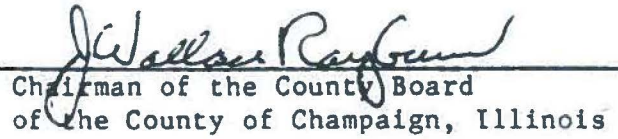 J Wallace Rayburn
Chairman of the County Board
of the County of Champaign, Illinois